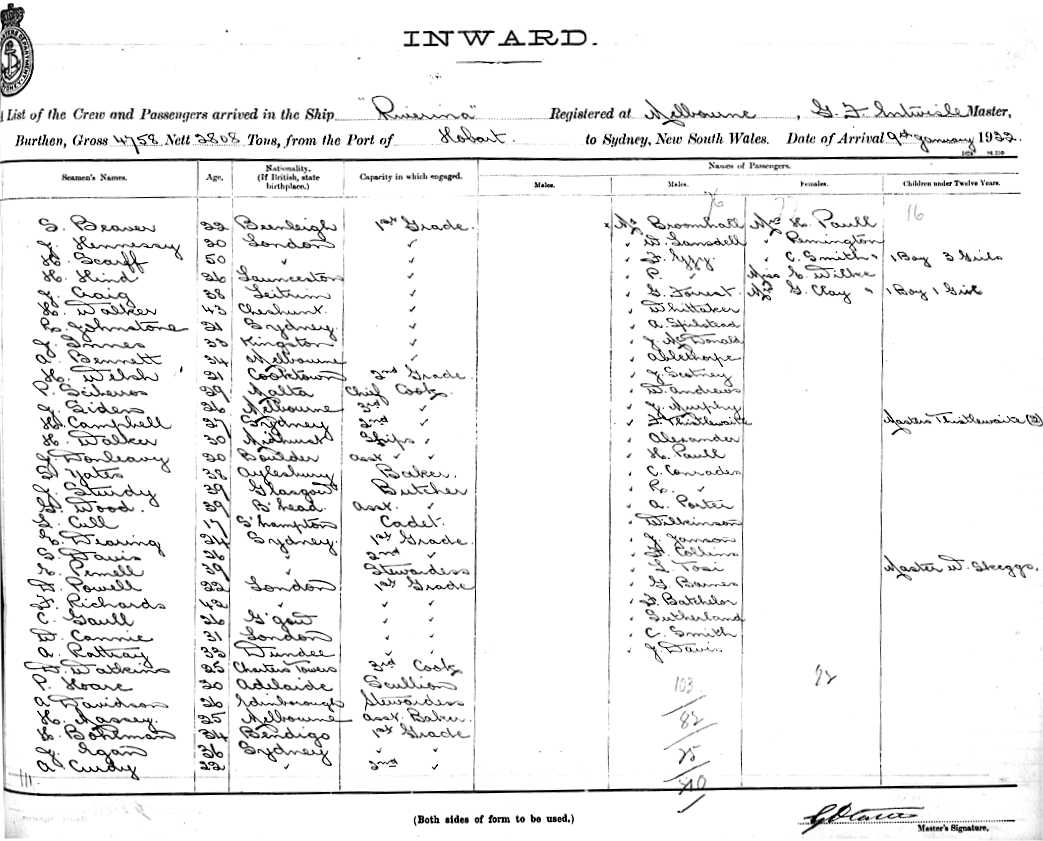 INWARD.
List of the Crew and Passengers arrived in the Ship "Riverina" Registered at Melbourne, G. F. Entwisle Master,
Burthen, Gross 4758 Nett 2808 Tons, from the Port of Hobart. to Sydney, New South Wales. Date of Arrival 9th January 1922
Seamen's Names. Age. Nationality, (If British, state birthplace.) Capacity in which engaged. Names of Passengers.
Males. Males. Females. Children under Twelve Years.
76 77 16
S. Beaver 22 Beenleigh 1st Grade. Mr Broomhall Mrs H. Paull
J. Hennessy 20 London " " W. Lansdell " Pemington
H. Scarff 50 " " " F. Eggy. " C. Smith " 1 Boy 3 Girls
H. Hind 26 Launceston " " P. " Miss C. Wilke
J. Craig 38 Leitrim " " G. Forrest. Mrs G. Clay " 1 Boy 1 Girl
H. Walker 43 Cheshunt " " Whittaker
R. Johnstone 21 Sydney. " " A. Spilstead
J. Innes 33 Kingston " " J. McDonald
A. Bennett 34 Melbourne " " Ablethorpe
H. Welsh 21 Cooktown 2nd Grade. " J. Scotney
P. Sciberos 29 Malta Chief Cook. " W. Andrews
J. Siden 26 Melbourne 3rd " " J. Murphy
H. Campbell 27 Sydney 2nd " " F. Thistlewaite Masters Thistlewaite (2)
H. Walker 30 Midhurst Ships " " Alexander
J. Donleavy 20 Boulder asst " " " H. Paull
S. Yates 38 Aylesbury Baker. " C. Conrades
J. Sturdy 39 Glasgow Butcher " R. "
G. Wood. 39 B'head. asst. " " A. Porter
G. Cull 17 S'hampton Cadet. " Wilkinson
R. Dearing 24 Sydney. 1st Grade. " J. Janson
S. Davis 26 " 2nd " " H. Collins
R. Pemell 39 " Stewardess " L. Tosi Master W. Skeggs.
W. Powell 22 London 1st Grade " G. Barnes
F. Richards 42 " " " " F. Batchelor
C. Gaull 26 G'gow " " " Sutherland
W. Connie 31 London " " " C. Smith
A. Rattray 33 Dundee " " " J. Davis
W. Watkins 25 Charters Towers 3rd Cook
P. Hoare 20 Adelaide Scullion 103 92
A. Davidson 26 Edinborough Stewardess
H. Massey. 25 Melbourne asst. Baker. 82
H. Boheman 24 Bendigo 1st Grade
J. Egan 36 Sydney " " 25
A. Curdy 22 " 2nd "
210
(Both sides of form to be used.)
Master's Signature.